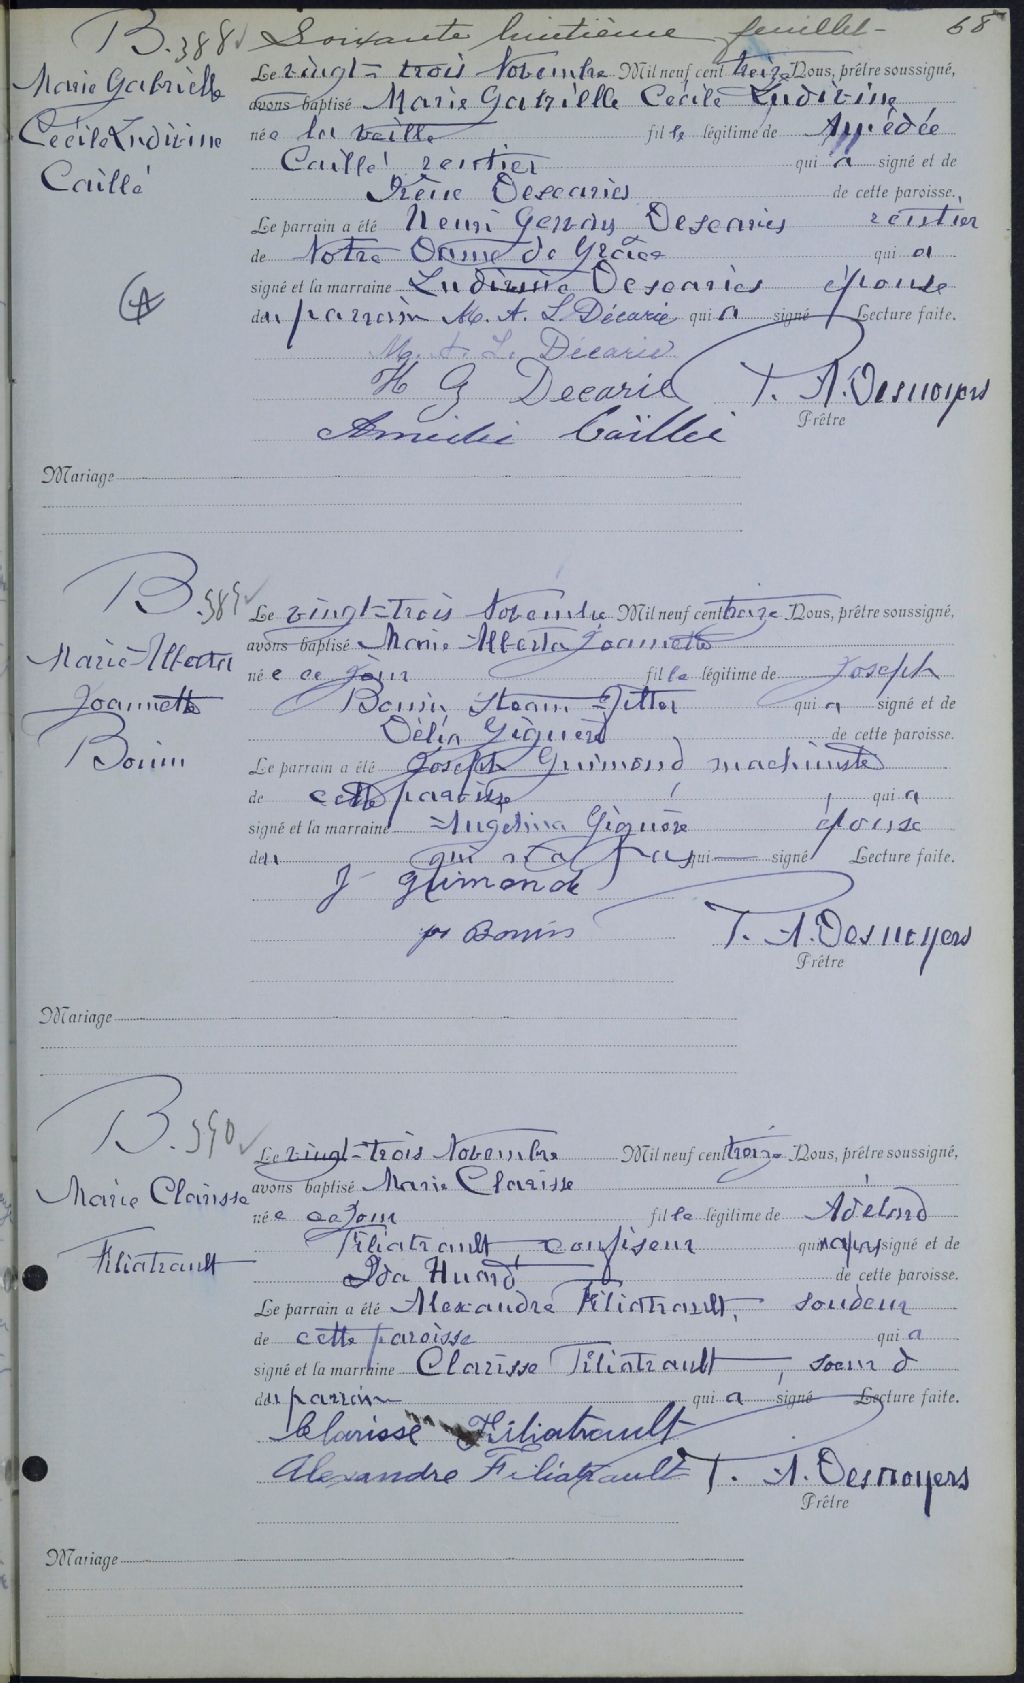 Soixante huitième feuillet - 68
B. 388
Marie Gabrielle
Cécile Ludivine
Caillé
Le vingt-trois Novembre Mil neuf cent treize Nous, prêtre soussigné,
avons baptisé Marie Gabrielle Cécile Ludivine
née la veille fille légitime de Amédée
Caillé rentier qui a signé et de
Irène Descaries de cette paroisse.
Le parrain a été Henri Gervais Descaries rentier
de Notre Dame de Grâce qui a
signé et la marraine Ludivine Descaries épouse
du parrain M. A. L. Décarie qui a signé Lecture faite.
M. A. L. Décarie
H G Decarie T. A. Desnoyers
Prêtre
Amédée Caillé
Mariage
B. 389
Marie-Alberta
Joannette
Bonin
Le vingt-trois Novembre Mil neuf cent treize Nous, prêtre soussigné,
avons baptisé Marie-Alberta Joannette
née ce jour fille légitime de Joseph
Bonin Steam-Fitter qui a signé et de
Délia Giguère de cette paroisse.
Le parrain a été Joseph Guimond machiniste
de cette paroisse qui a
signé et la marraine Angelina Giguère épouse
du qui n'a pas qui signé Lecture faite.
J Guimond
Jos Bonin T. A. Desnoyers
Prêtre
Mariage
B. 390
Marie Clarisse
Filiatrault
Le vingt-trois Novembre Mil neuf cent treize Nous, prêtre soussigné,
avons baptisé Marie Clarisse
née ce jour fille légitime de Adélard
Filiatrault confiseur qui signé et de
Ida Huard de cette paroisse.
Le parrain a été Alexandre Filiatrault, soudeur
de cette paroisse qui a
signé et la marraine Clarisse Filiatrault, soeur d
du parrain qui a signé Lecture faite.
Clarisse Filiatrault
Alexandre Filiatrault T. A. Desnoyers
Prêtre
Mariage